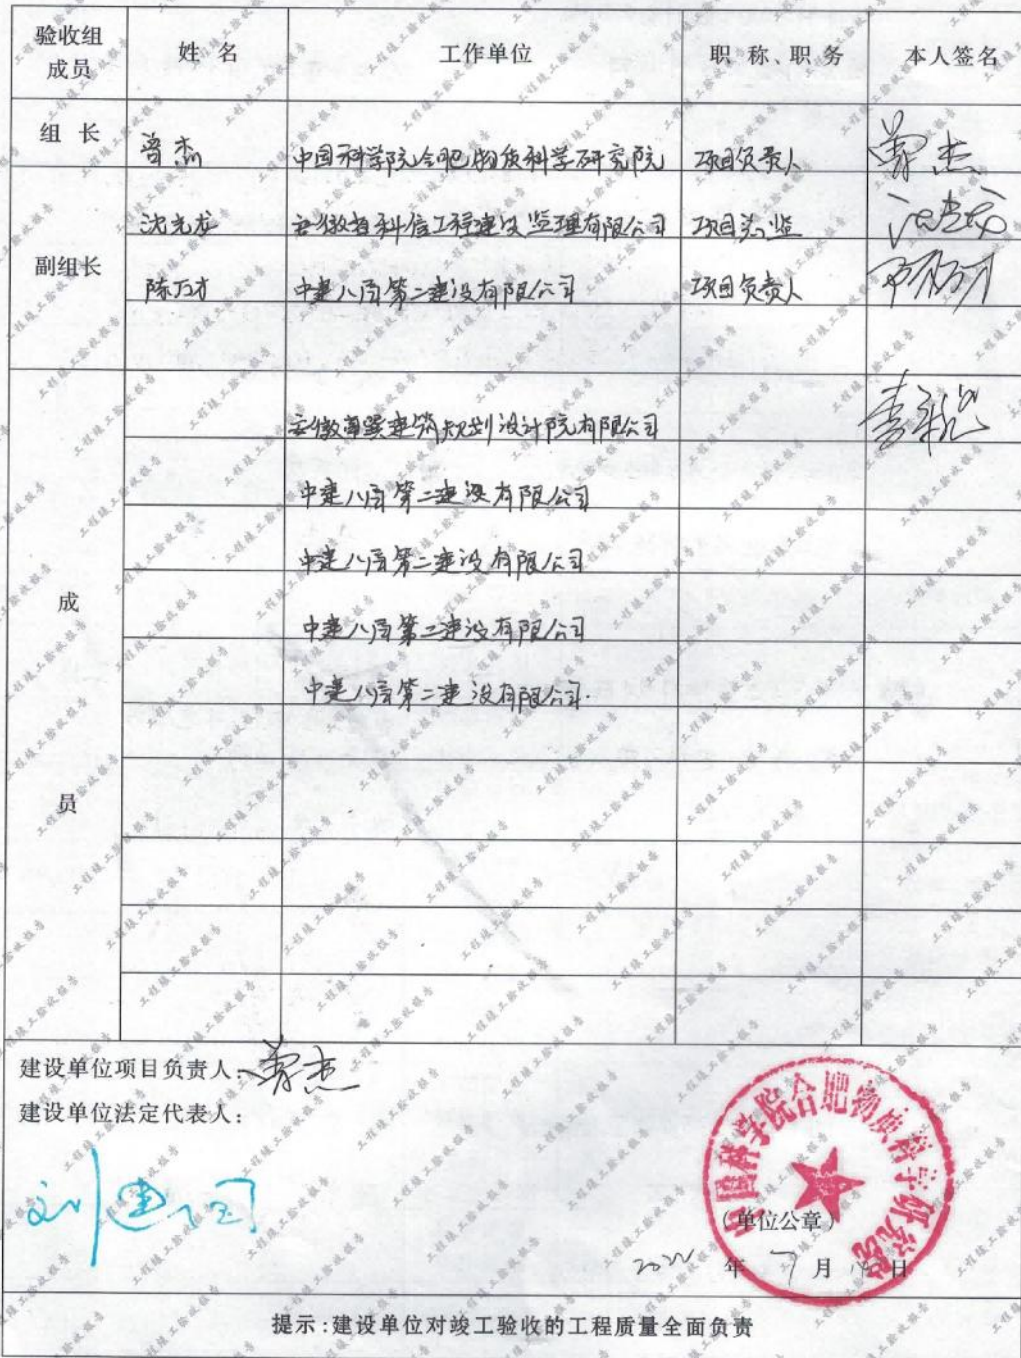 验收组成员 姓 名 工作单位 职 称、职务 本人签名
组 长 曾杰 中国科学院合肥物质科学研究院 项目负责人 曾杰
副组长
沈光龙 安徽省科信工程建设监理有限公司 项目总监
陈万才 中建八局第二建设有限公司 项目负责人 陈万才
成员
建筑规划设计院有限公司
中建八局第二建设有限公司
中建八局第二建设有限公司
中建八局第二建设有限公司
中建八局第二建设有限公司.
建设单位项目负责人:曾杰
建设单位法定代表人:
刘建国
中国科学院合肥物质科学研究院
(单位公章)
2022 年 7 月 日
提示:建设单位对竣工验收的工程质量全面负责
工程竣工验收报告